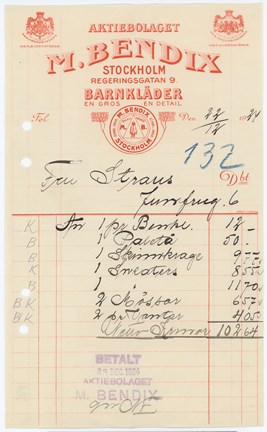 AKTIEBOLAGET
M. BENDIX
STOCKHOLM
REGERINGSGATAN 9.
BARNKLÄDER
EN GROS EN DETAIL
M. BENDIX
STOCKHOLM
Fol. Den 22/12 1924
132
Fru Straus Dbt
Jungfrug. 6
K An 1 pr Benkl. 12 -
B 1 Paletå 50 -
B 1 Skinnkrage 9
K 1 Sweaters 8 55
B 1 11 70
BK 2 Mössor 6 57
BK 2 pr Vantar 4 05
Kronor 102 64
BETALT
DEC. 1924
AKTIEBOLAGET
M. BENDIX